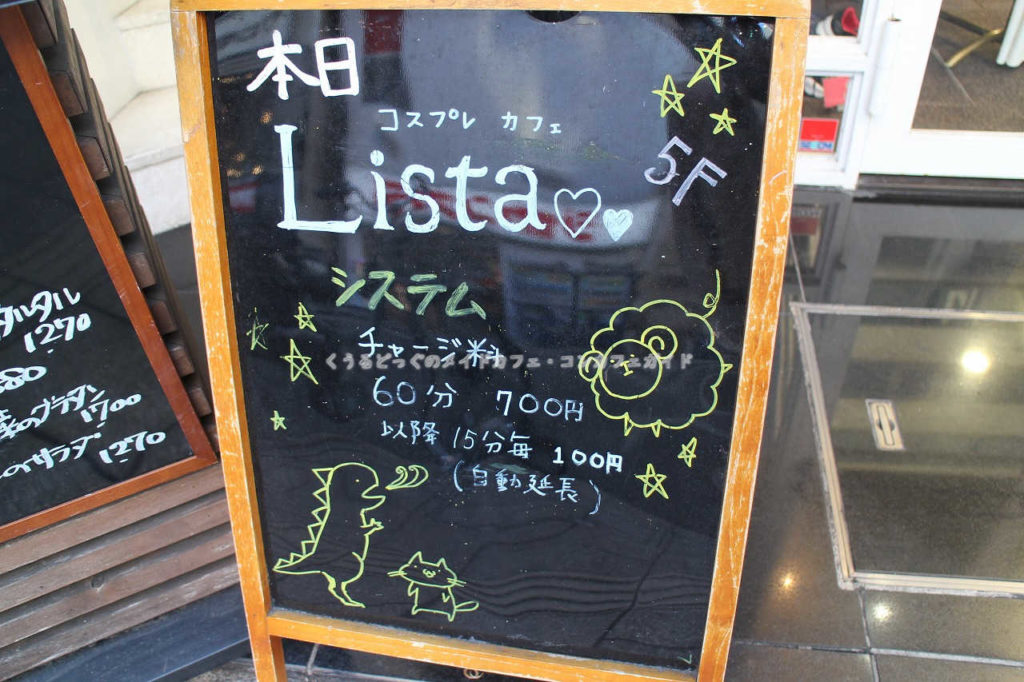 本日
コスプレ カフェ
Lista
5F
システム
チャージ料
くうるどっぐのメイドカフェ・コンカフェガイド
60分 700円
以降 15分毎 100円
(自動延長)
タルタル
1270
80
1700
サラダ 1270